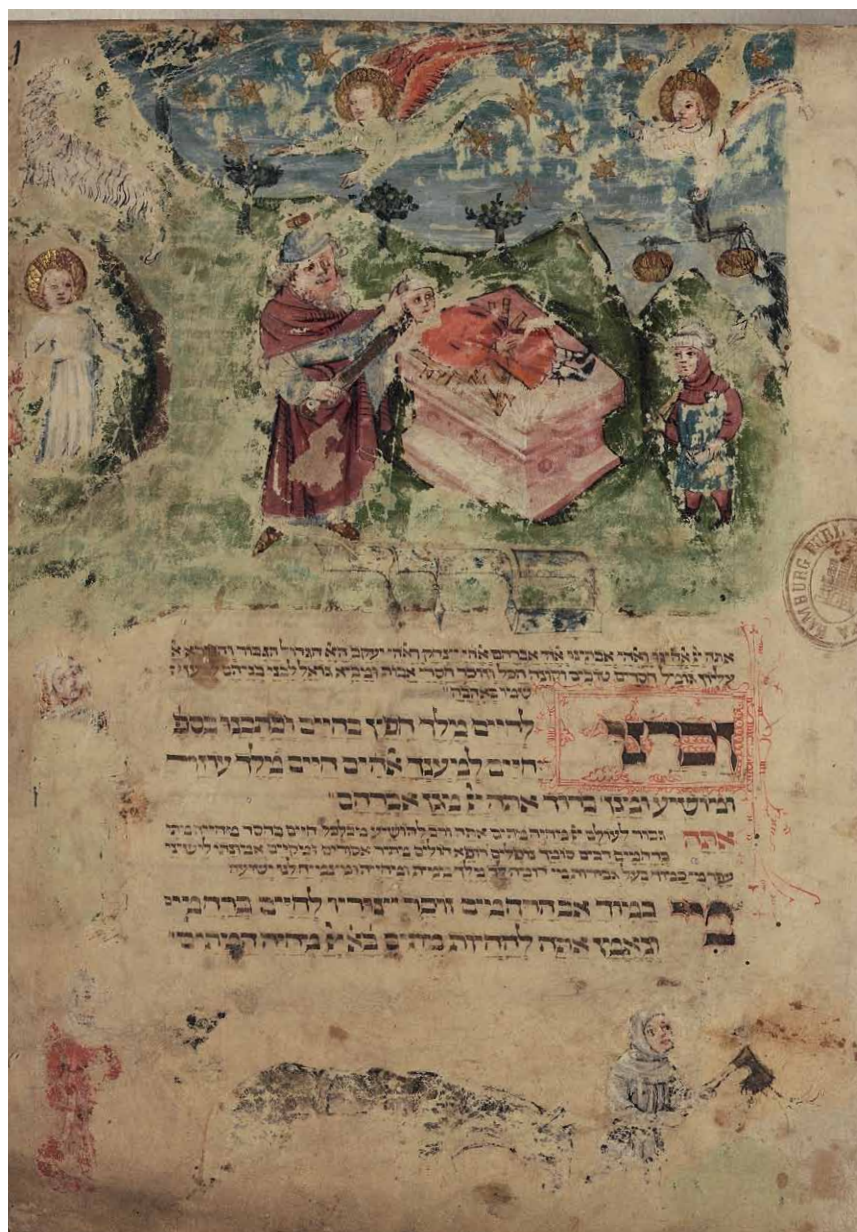 אתה יי אלהינו ואלהי אבותינו אלהי אברהם אלהי יצחק ואלהי יעקב האל הגדול הגבור והנורא
עליון גומל חסדים טובים וקונה הכל וזוכר חסדי אבות ומביא גואל לבני בניהם למען
שמו באהבה
זכרנו לחיים מלך חפץ בחיים וכתבנו בספר
חיים למענך אלהים חיים מלך עוזר
ומושיע ומגן ברוך אתה יי מגן אברהם
אתה גבור לעולם יי מחיה מתים אתה ורב להושיע מכלכל חיים בחסד מחיה מתי
ברחמים רבים סומך נופלים רופא חולים מתיר אסורים ומקיים אמונתו לישיני
עפר מי כמוך בעל גבורות ומי דומה לך מלך ממית ומחיה ומצמיח לנו ישועה
מי כמוך אב הרחמים זוכר יצוריו לחיים ברחמים
ונאמן אתה להחיות מתים בא״י מחיה המתים